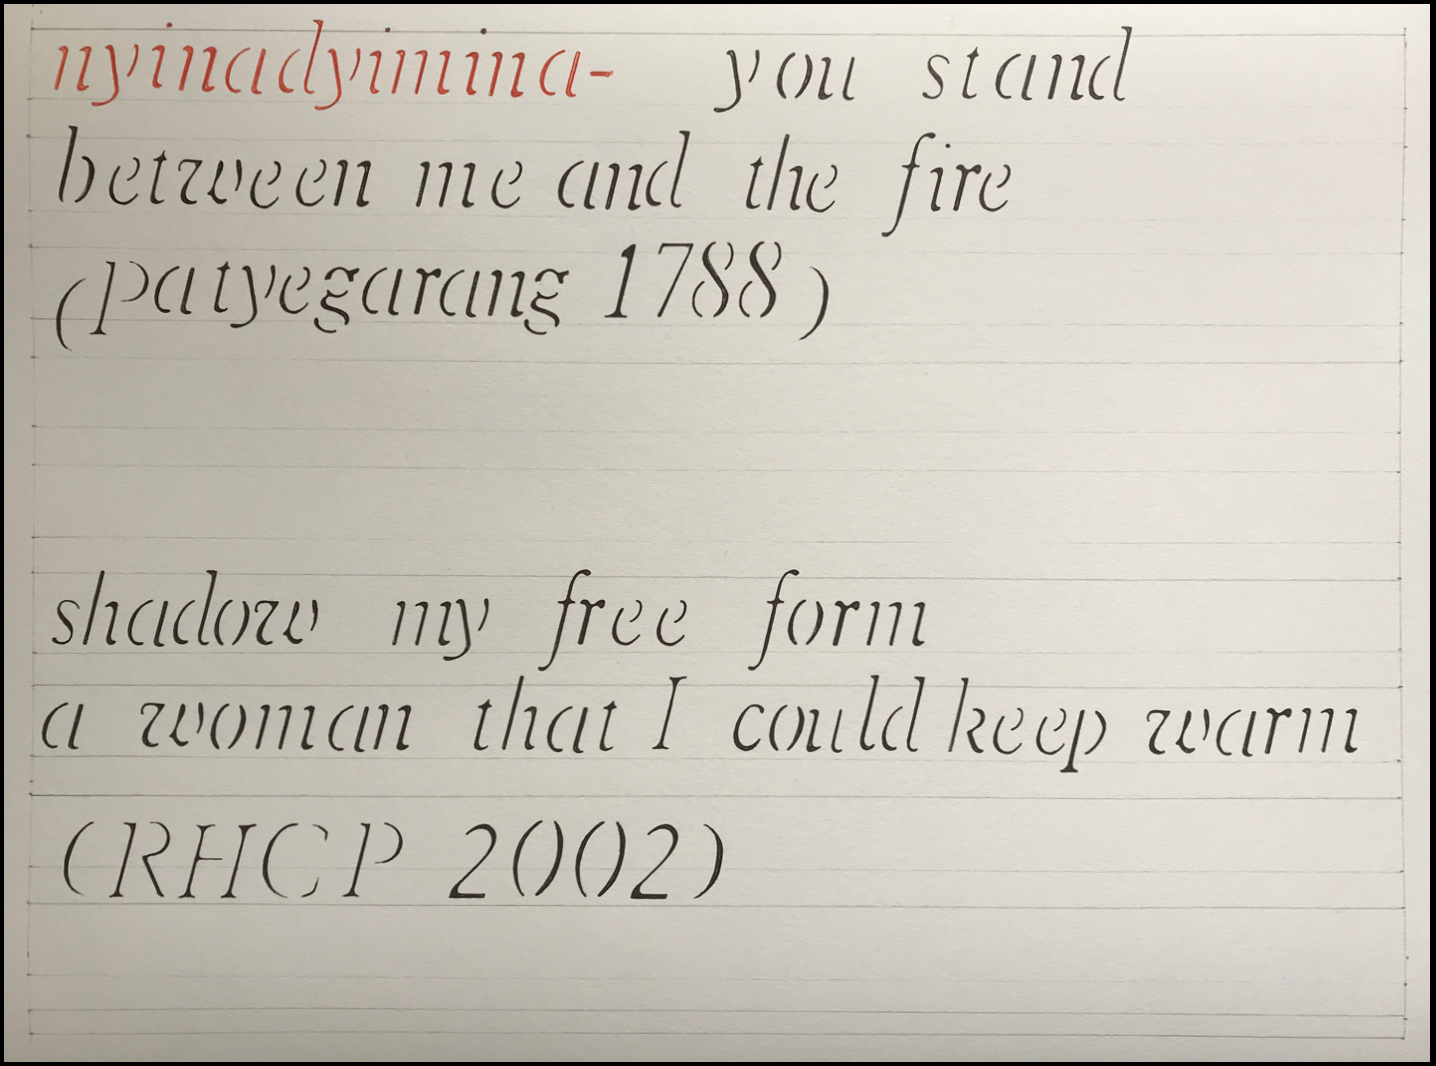 nyinadyimina- you stand
between me and the fire
(patyegarang 1788)
shadow my free form
a woman that I could keep warm
(RHCP 2002)